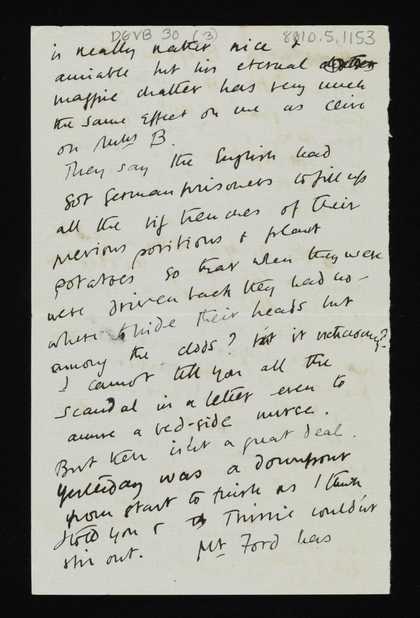 DGVB 30 (3)
8010.5.1153
is really rather nice &
amiable but his eternal
magpie chatter has very much
the same effect on me as
on B.
They say the English had
got German prisoners to fill up
all the big trenches of their
previous positions & plant
potatoes so that when they were
were driven back they had no-
where to hide their heads but
among the clods? Isn't it
I cannot tell you all the
scandal in a letter even to
amuse a bed-side nurse.
But there isn't a great deal.
Yesterday was a downpour
from start to finish as I think
I told you & Thissie couldn't
stir out. Mr Ford has